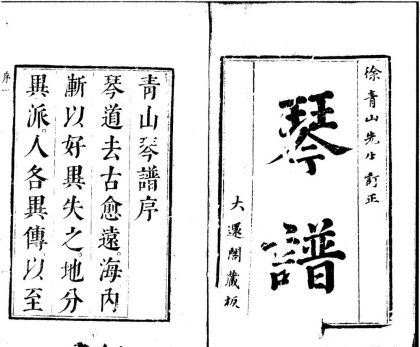 徐青山先生訂正
琴譜
大還閣藏板
青山琴譜序
琴道去古愈遠。海內
漸以好異失之。地分
異派。人各異傳以至
序一